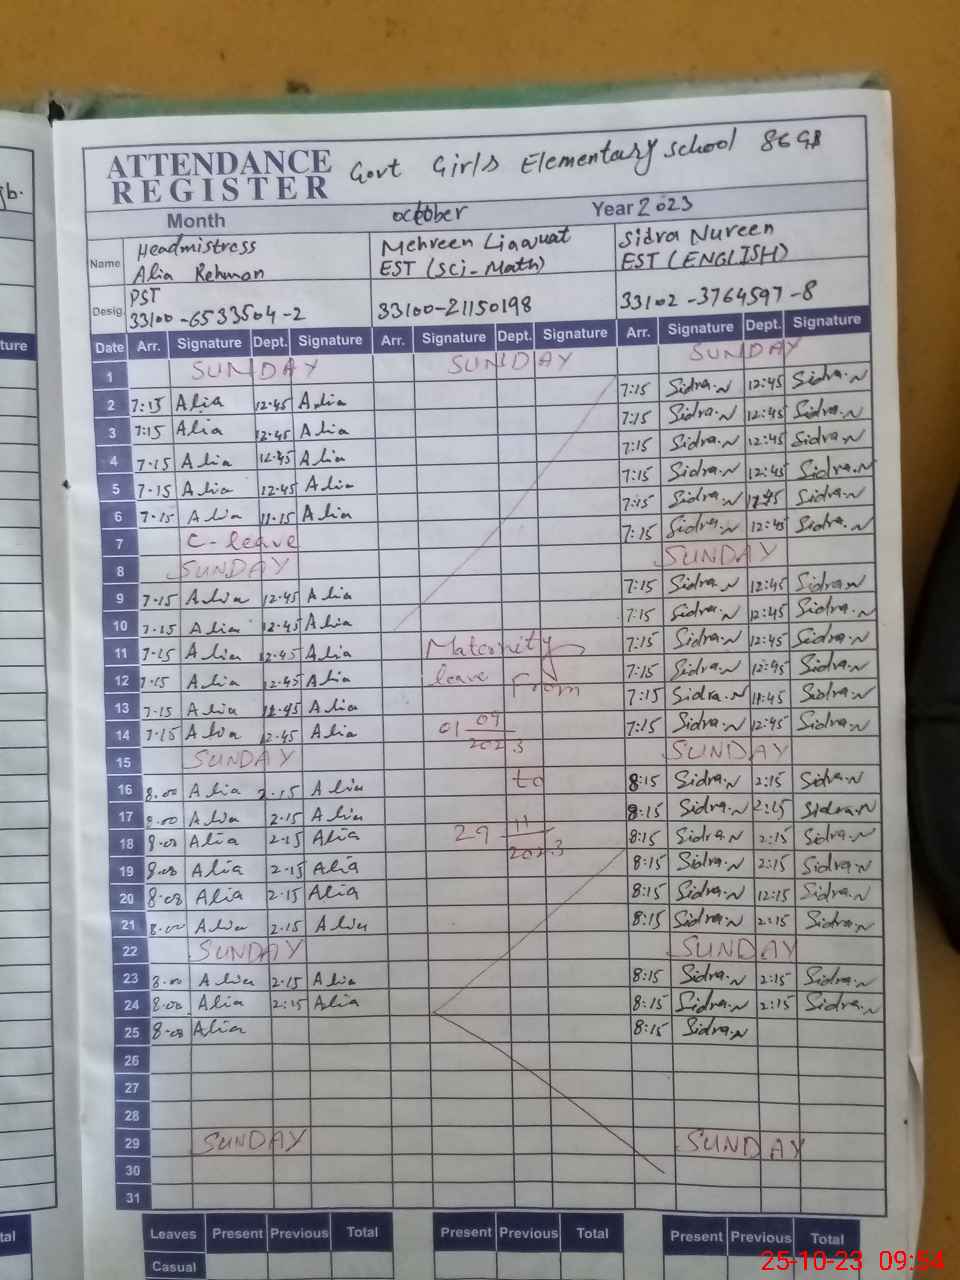 ATTENDANCE REGISTER Govt Girls Elementary school 86 GB
Month october Year 2023
Name Headmistress Alia Rehman Mehreen Liaquat EST (Sci-Math) Sidra Nureen EST (ENGLISH)
Desig. PST 33100-6533504-2 33100-21150198 33102-3764597-8
Date Arr. Signature Dept. Signature Arr. Signature Dept. Signature Arr. Signature Dept. Signature
1 SUNDAY SUNDAY SUNDAY
2 7:15 Alia 12.45 Alia 7:15 Sidra.N 12:45 Sidra.N
3 7:15 Alia 12.45 Alia 7:15 Sidra.N 12:45 Sidra.N
4 7.15 Alia 12.45 Alia 7:15 Sidra.N 12:45 Sidra.N
5 7.15 Alia 12.45 Alia 7:15 Sidra.N 12:45 Sidra.N
6 7.15 Alia 11.15 Alia 7:15 Sidra.N Sidra.N
7 C-leave 7:15 Sidra.N 12:45 Sidra.N
8 SUNDAY SUNDAY
9 7.15 Alia 12.45 Alia 7:15 Sidra.N 12:45 Sidra.N
10 7.15 Alia 12.45 Alia 7:15 Sidra.N 12:45 Sidra.N
11 7.15 Alia 12.45 Alia Maternity 7:15 Sidra.N 12:45 Sidra.N
12 7.15 Alia 12.45 Alia leave From 7:15 Sidra.N 12:45 Sidra.N
13 7.15 Alia 12.45 Alia 7:15 Sidra.N 11:45 Sidra.N
14 7.15 Alia 12.45 Alia 01 09 2023 7:15 Sidra.N 12:45 Sidra.N
15 SUNDAY SUNDAY
16 8.00 Alia 2.15 Alia to 8:15 Sidra.N 2:15 Sidra.N
17 8.00 Alia 2.15 Alia 8:15 Sidra.N 2:15 Sidra.N
18 8.00 Alia 2.15 Alia 29 11 2023 8:15 Sidra.N 2:15 Sidra.N
19 8.00 Alia 2.15 Alia 8:15 Sidra.N 2:15 Sidra.N
20 8.00 Alia 2.15 Alia 8:15 Sidra.N 12:15 Sidra.N
21 8.00 Alia 2.15 Alia 8:15 Sidra.N 2:15 Sidra.N
22 SUNDAY SUNDAY
23 8.00 Alia 2.15 Alia 8:15 Sidra.N 2:15 Sidra.N
24 8.00 Alia 2:15 Alia 8:15 Sidra.N 2:15 Sidra.N
25 8.00 Alia 8:15 Sidra.N
26
27
28
29 SUNDAY SUNDAY
30
31
Leaves Present Previous Total Present Previous Total Present Previous Total
Casual
25-10-23 09:54